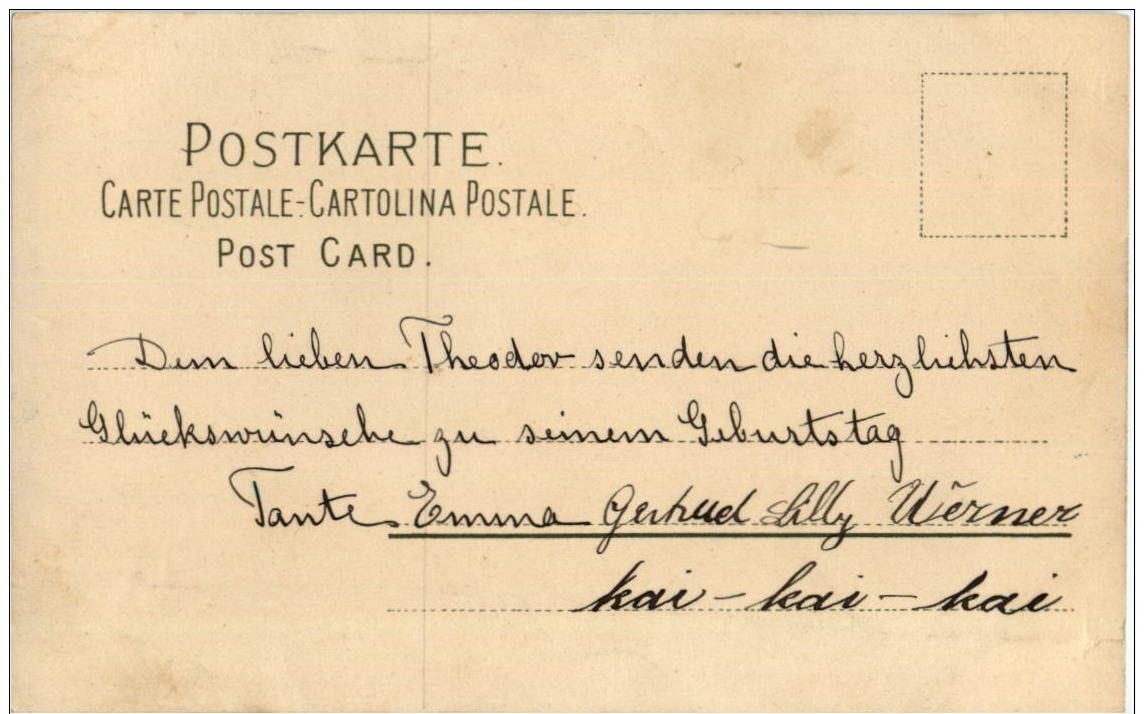 POSTKARTE.
CARTE POSTALE-CARTOLINA POSTALE.
POST CARD.
Dem lieben Theodor senden die herzlichsten
Glückswünsche zu seinem Geburtstag
Tante Emma Gertrud Lilly Werner
kai - kai - kai